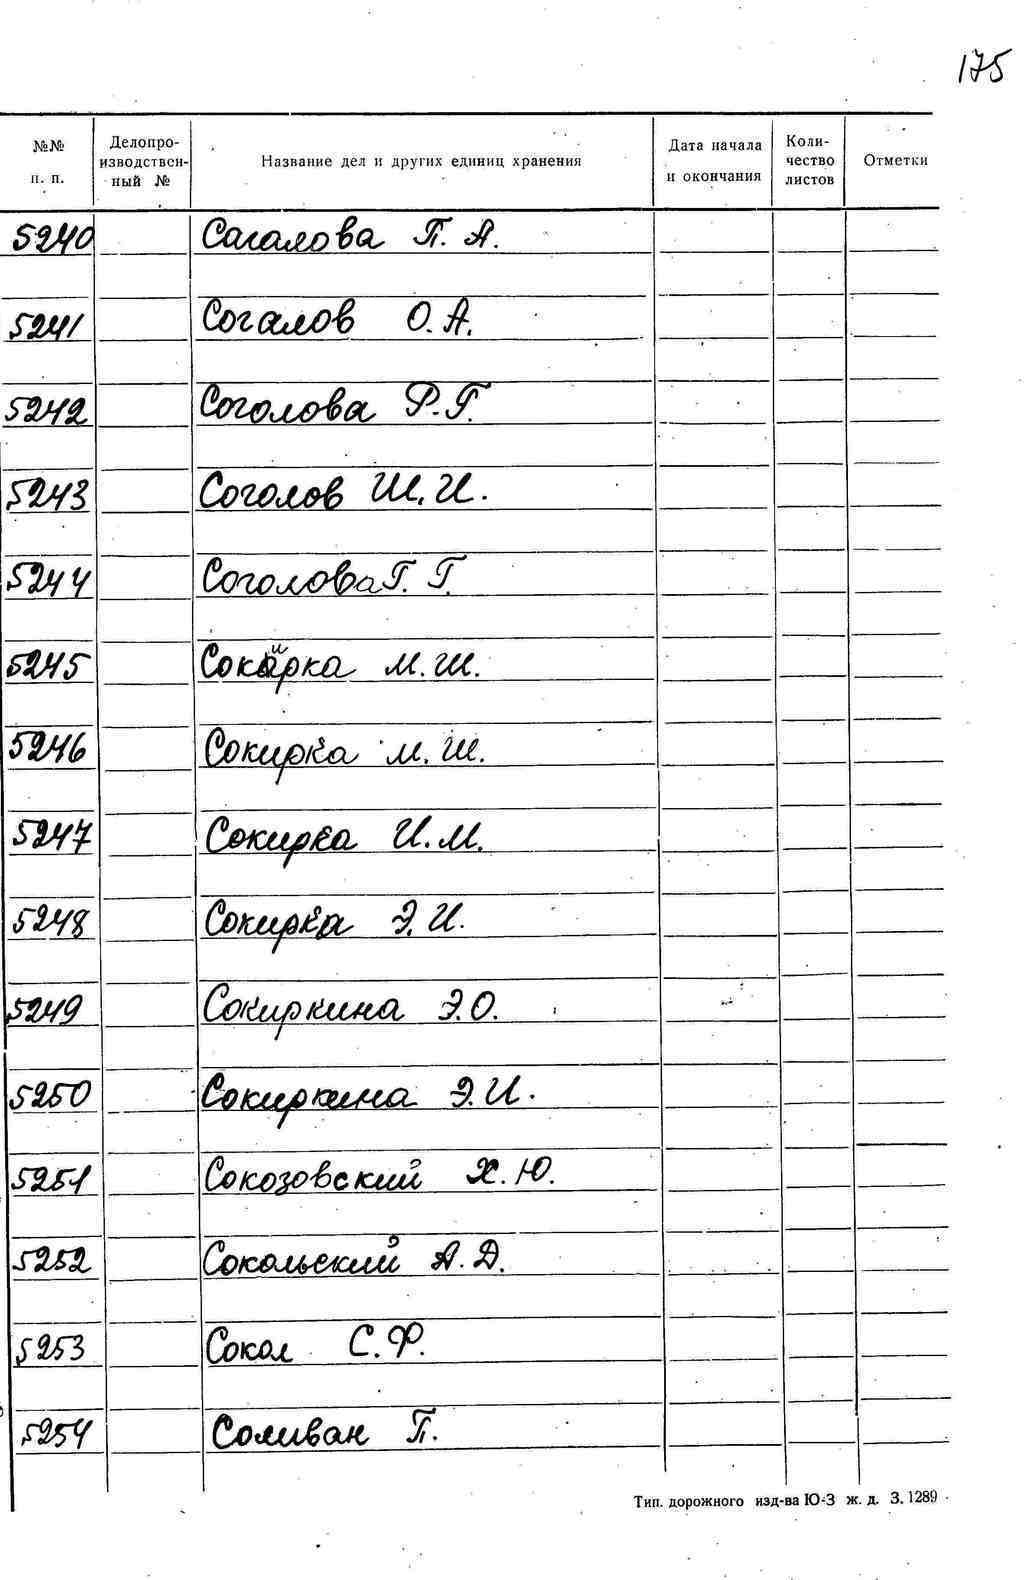 175
№№ п. п. Делопроизводствен-ный № Название дел и других единиц хранения Дата начала и окончания Количество листов Отметки
5240 Сагалова П. А.
5241 Согалов О. А.
5242 Соголова Р. Г.
5243 Соголов Ш. И.
5244 Соголова Г. Г.
5245 Сокирка М. Ш.
5246 Сокирка М. Ш.
5247 Сокирка И. М.
5248 Сокирка Э. И.
5249 Сокиркина Э. О.
5250 Сокиркина Э. И.
5251 Сокозовский Х. Ю.
5252 Сокольский А. Д.
5253 Сокол С. Ф.
5254 Соливан П.
Тип. дорожного изд-ва Ю-З ж. д. З. 1289